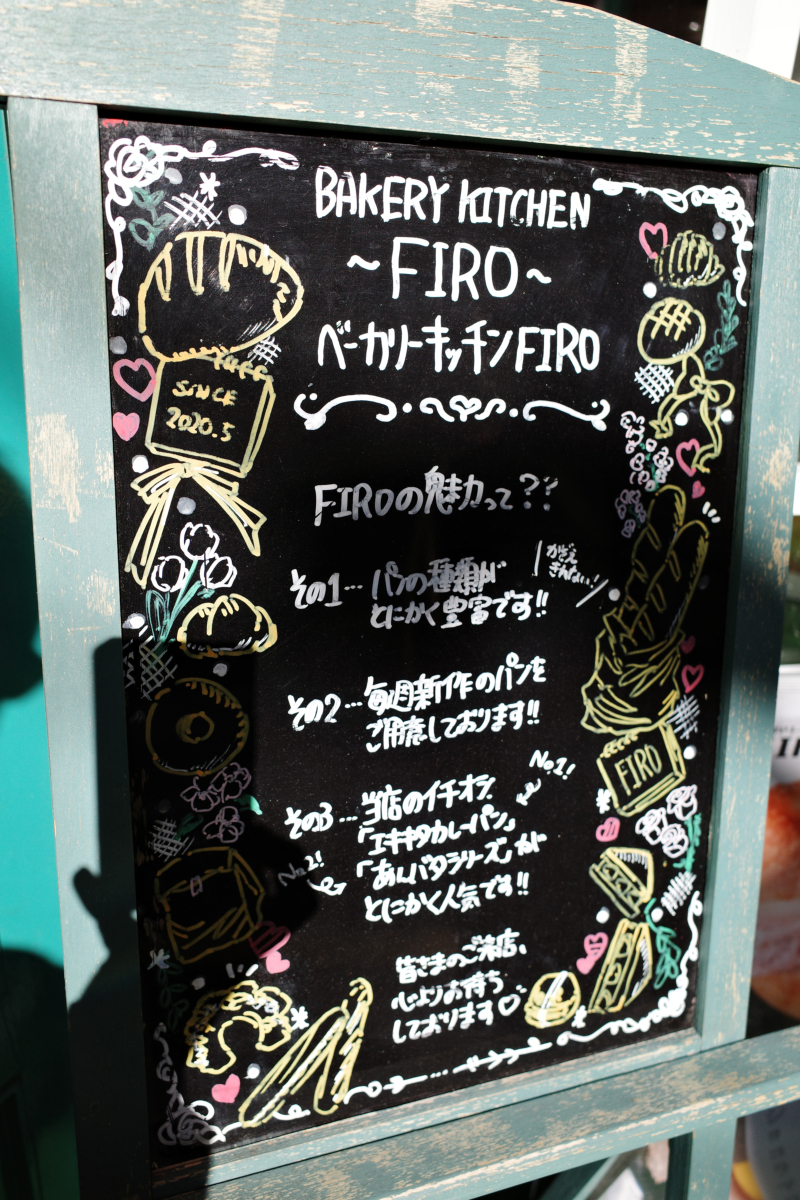 BAKERY KITCHEN
~FIRO~
ベーカリーキッチンFIRO
SINCE
2020.5
FIROの魅力って??
その1… パンの種類が
とにかく豊富です!!
かぞえ
きれない!
その2… 毎週新作のパンを
ご用意しております!!
その3… 当店のイチオシ
No1!
「エキキタカレーパン」
「あんバタシリーズ」が
No2!
とにかく人気です!!
FIRO
皆さまのご来店、
心よりお待ち
しております♡